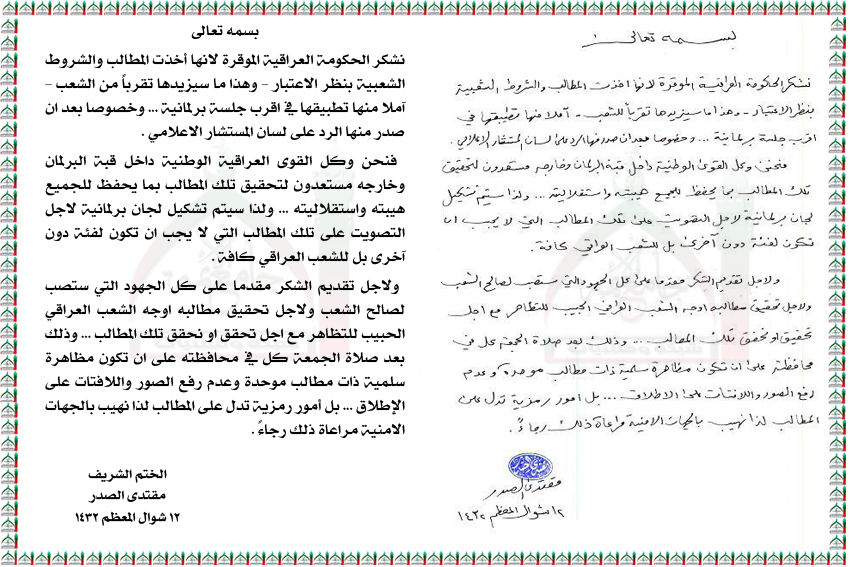 بسمه تعالى
نشكر الحكومة العراقية الموقرة لانها أخذت المطالب والشروط
الشعبية بنظر الاعتبار - وهذا ما سيزيدها تقرباً من الشعب -
آملا منها تطبيقها في اقرب جلسة برلمانية ... وخصوصا بعد ان
صدر منها الرد على لسان المستشار الاعلامي .
فنحن وكل القوى العراقية الوطنية داخل قبة البرلمان
وخارجه مستعدون لتحقيق تلك المطالب بما يحفظ للجميع
هيبته واستقلاليته ... ولذا سيتم تشكيل لجان برلمانية لاجل
التصويت على تلك المطالب التي لا يجب ان تكون لفئة دون
آخرى بل للشعب العراقي كافة .
ولاجل تقديم الشكر مقدما على كل الجهود التي ستصب
لصالح الشعب ولاجل تحقيق مطالبه اوجه الشعب العراقي
الحبيب للتظاهر مع اجل تحقق او نحقق تلك المطالب ... وذلك
بعد صلاة الجمعة كل في محافظته على ان تكون مظاهرة
سلمية ذات مطالب موحدة وعدم رفع الصور واللافتات على
الإطلاق ... بل أمور رمزية تدل على المطالب لذا نهيب بالجهات
الامنية مراعاة ذلك رجاءً .
الختم الشريف
مقتدى الصدر
١٢ شوال المعظم ١٤٣٢
بسمه تعالى
نشكر الحكومة العراقية الموقرة لانها اخذت المطالب والشروط الشعبية
بنظر الاعتبار - وهذا ما سيزيدها تقرباً للشعب - آملا منها تطبيقها في
اقرب جلسة برلمانية ... وخصوصا بعد ان صدر منها الرد على لسان المستشار الاعلامي .
فنحن وكل القوى الوطنية داخل قبة البرلمان وخارجه مستعدون لتحقيق
تلك المطالب بما يحفظ للجميع هيبته واستقلاليته ... ولذا سيتم تشكيل
لجان برلمانية لاجل التصويت على تلك المطالب التي لا يجب ان
تكون لفئة دون آخرى بل للشعب العراقي كافة .
ولاجل تقديم الشكر مقدما على كل الجهود التي ستصب لصالح الشعب
ولاجل تحقيق مطالبه اوجه الشعب العراقي الحبيب للتظاهر مع اجل
تحقيق او نحقق تلك المطالب ... وذلك بعد صلاة الجمعة كل في
محافظته على ان تكون مظاهرة سلمية ذات مطالب موحدة وعدم
رفع الصور واللافتات على الاطلاق ... بل امور رمزية تدل على
المطالب لذا نهيب بالجهات الامنية مراعاة ذلك رجاءً .
مقتدى الصدر
١٢ شوال المعظم ١٤٣٢